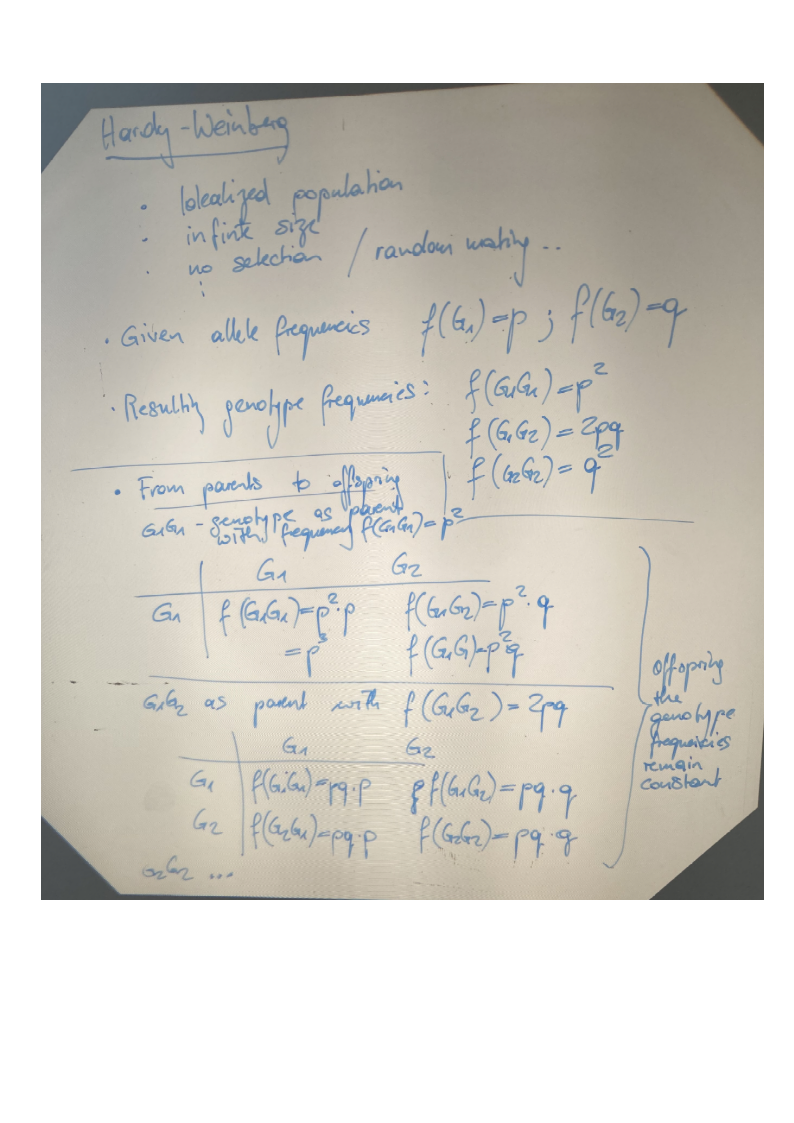 Hardy-Weinberg
• Idealized population
• infinte size
• no selection / random mating ..
⋮
• Given allele frequencies f(G₁)=p ; f(G₂)=q
• Resulting genotype frequencies: f(G₁G₁)=p²
f(G₁G₂)=2pq
f(G₂G₂)=q²
• From parents to offspring
G₁G₁ - genotype as parent
with frequency f(G₁G₁)=p²
G₁ G₂
G₁ f(G₁G₁)=p²·p f(G₁G₂)=p²·q
=p³ f(G₁G)=p²q
G₁G₂ as parent with f(G₁G₂)=2pq
G₁ G₂
G₁ f(G₁G₁)=pq·p f(G₁G₂)=pq·q
G₂ f(G₂G₁)=pq·p f(G₂G₂)=pq·q
G₂G₂ ...
offspring
the
genotype
frequencies
remain
constant